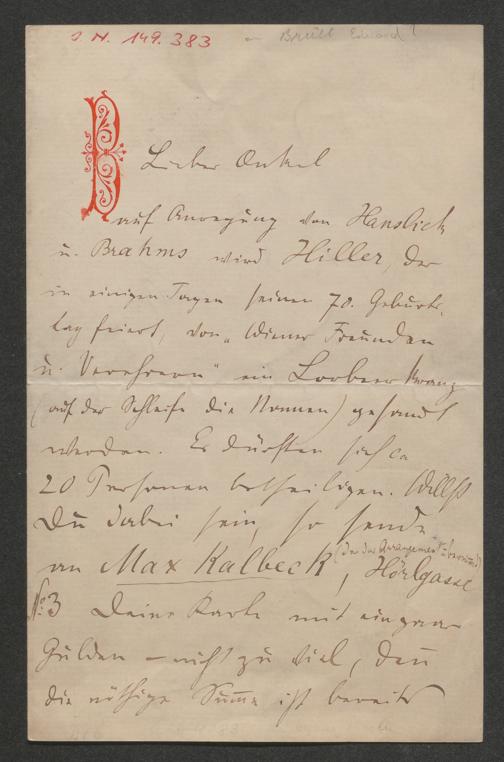 J. N. 149.383
an Brüll Eduard?
B
Lieber Onkel
auf Anregung von Hanslick
u. Brahms wird Hiller, der
in einigen Tagen seinen 70. Geburts-
tag feiert, von „Wiener Freunden
u. Verehrern" ein Lorbeerkranz
(auf der Schleife die Namen) gesandt
werden. Es dürften sich ca
20 Personen betheiligen. Willst
Du dabei sein, so sende
an Max Kalbeck, (der das Arrangement übernimmt) Hörlgasse
No. 3 Deine Karte mit ein paar
Gulden – nicht zu viel, denn
die nöthige Summe ist bereits